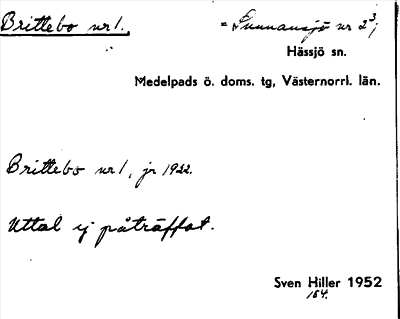 Brittebo nr 1. = Sunnansjö nr 2³;
Hässjö sn.
Medelpads ö. doms. tg, Västernorrl. län.
Brittebo nr 1, jr 1922.
Uttal ej påträffat.
Sven Hiller 1952
154.